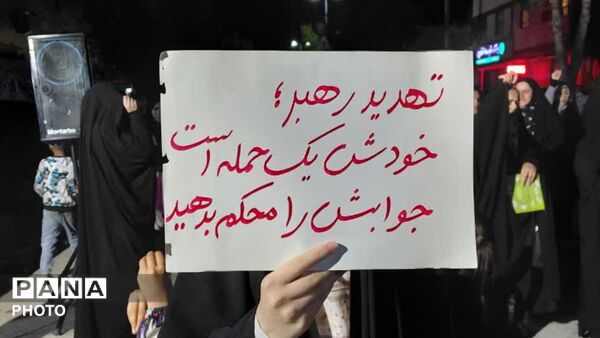 تهدید رهبر؛
خودش یک حمله است
جوابش را محکم بدهید
Montarbo
PANA
PHOTO